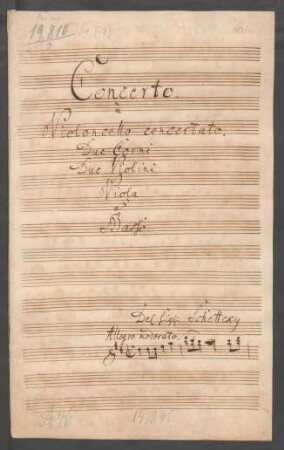 19,810
Concerto.
a
Violoncello concertato.
Due Corni
Due Violini
Viola
e
Basso
Del Sigr. Schettky
Allegro moderato.